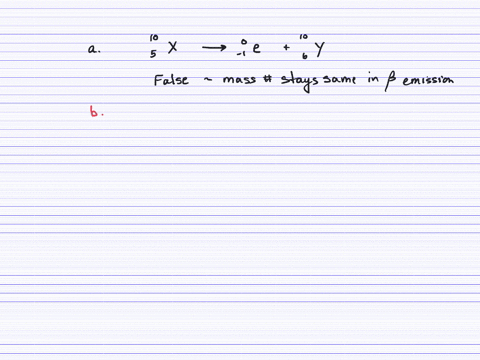 a. ¹⁰₅X → ⁰₋₁e + ¹⁰₆Y
False ~ mass # stays same in β emission
b.